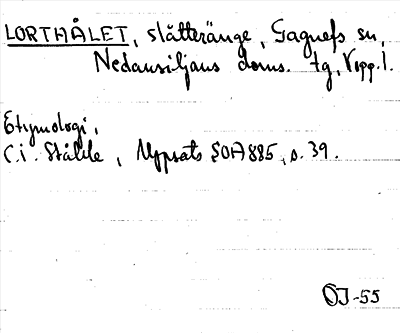 LORTHÅLET, slåtteränge, Gagnefs sn,
Nedansiljans doms. tg, Kopp. l.
Etymologi,
C.I. Ståhle, Uppsats SOA 885, s. 39.
OJ-55